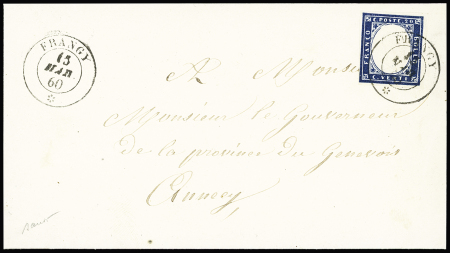 FRANGY
15
MAR
60
FRANCO C. POSTE 20 BOLLO C. VENTI
FRANGY
A Monsieur
Monsieur le Gouverneur
de la province du Genevois
Annecy,